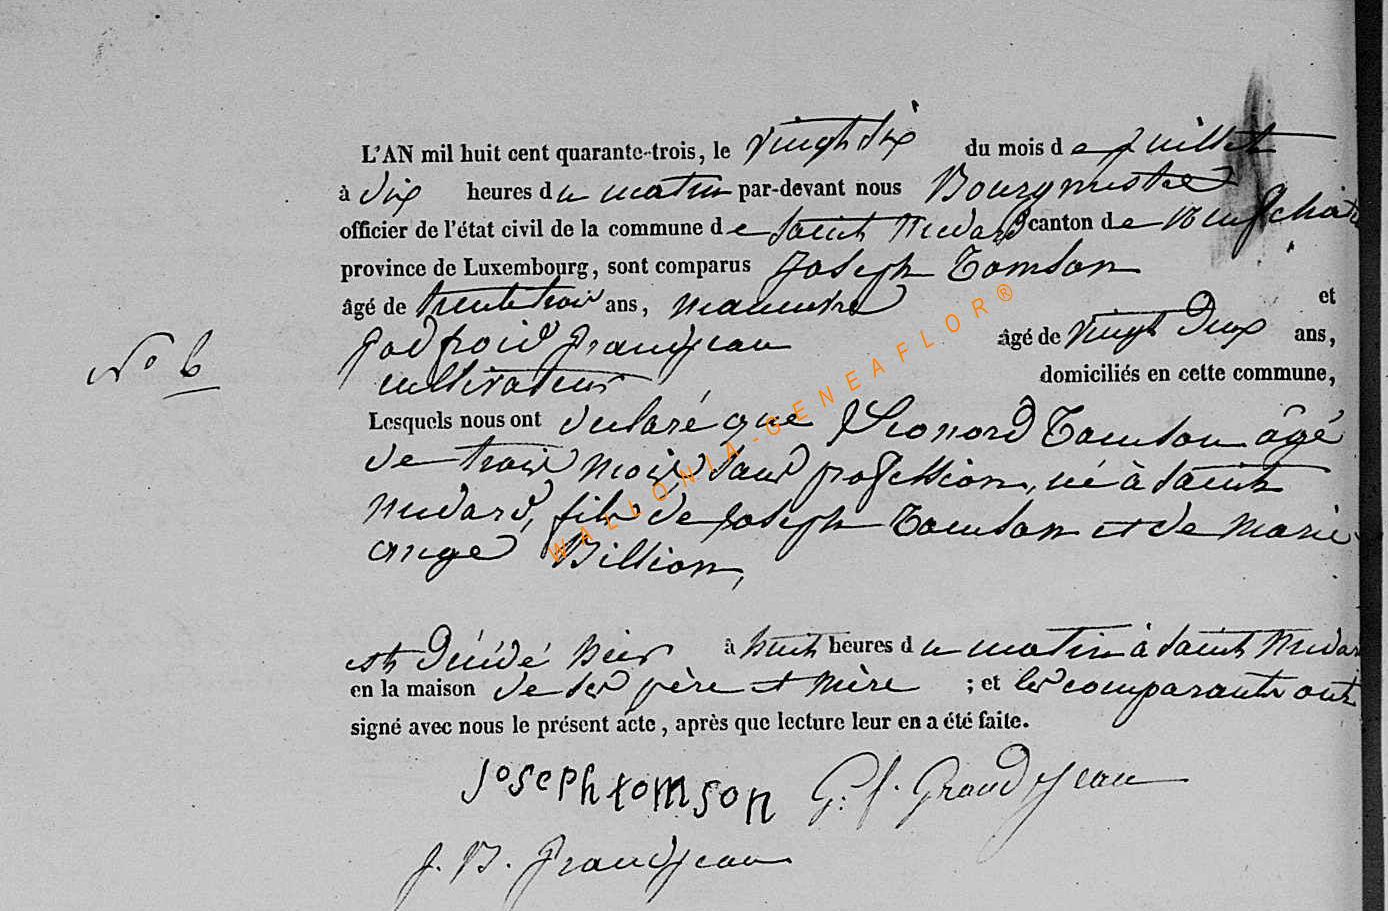 L'AN mil huit cent quarante-trois, le vingt six du mois de Juillet
à dix heures du matin par-devant nous Bourgmestre
officier de l'état civil de la commune de Saint Medard canton de Neufchat
province de Luxembourg, sont comparus Joseph Tomson
âgé de trente trois ans, manuvre et
Godfroid Grandjean âgé de vingt deux ans,
N° 6
cultivateur domiciliés en cette commune,
Lesquels nous ont declaré que Leonord Tomson âgé
de trois mois, sans profession, né à Saint
medard, fils de Joseph Tomson et de Marie
ange Billion,
est décédé hier à huit heures du matin à Saint Medar
en la maison de ses père et mère ; et les comparants ont
signé avec nous le présent acte, après que lecture leur en a été faite.
Joseph tomson G. f. Grandjean
J. B. Grandjean
WALLONIA-GENEAFLOR®